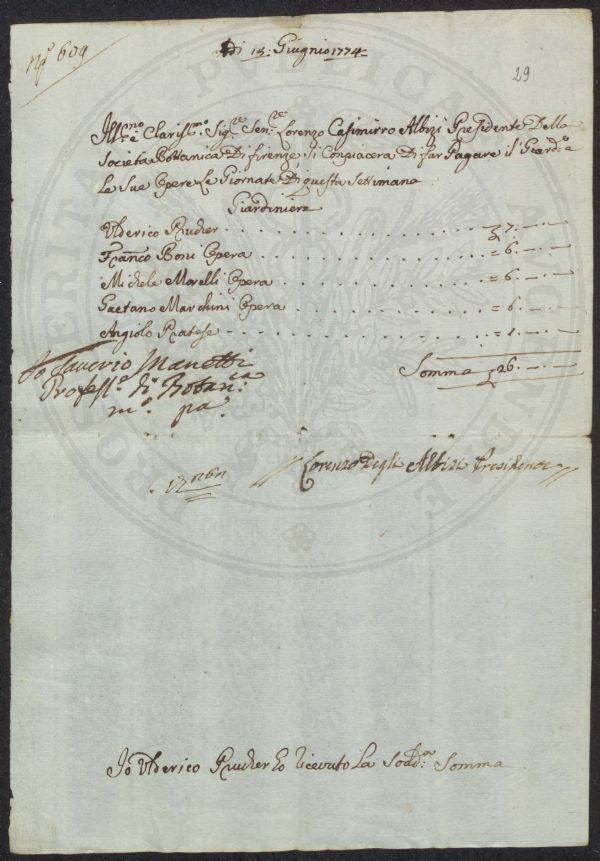 Nº 609
Adi 15: Giugnio 1774
29
Ill:mo e Clariss:mo Sig:re Sen:re Lorenzo Casimirro Albizi Presidente Della
Società Bottanica Di firenze, Si Conpiacera Di far Pagare il Giard:e
Le Sue Opere Le Giornate Di questa Settimana
Giardiniere
Ulderico Prucher . . . . . . . 7. — —
Franco Boni Opera . . . . . . = 6. — —
Michele Morelli Opera . . . . . . = 6. — —
Gaetano Marchini Opera . . . . . . = 6. — —
Angiolo Pratese . . . . . . = 1. — —
Somma 26. — —
Io Saverio Manetti
Profess:e di Botan:ca
mº. pa.
Lorenzo Degli Albizi Presidente
Io Ulderico Prucher ho riceuto La Sodd:a Somma
PROSPERITATI PUBLICAE AUGENDAE